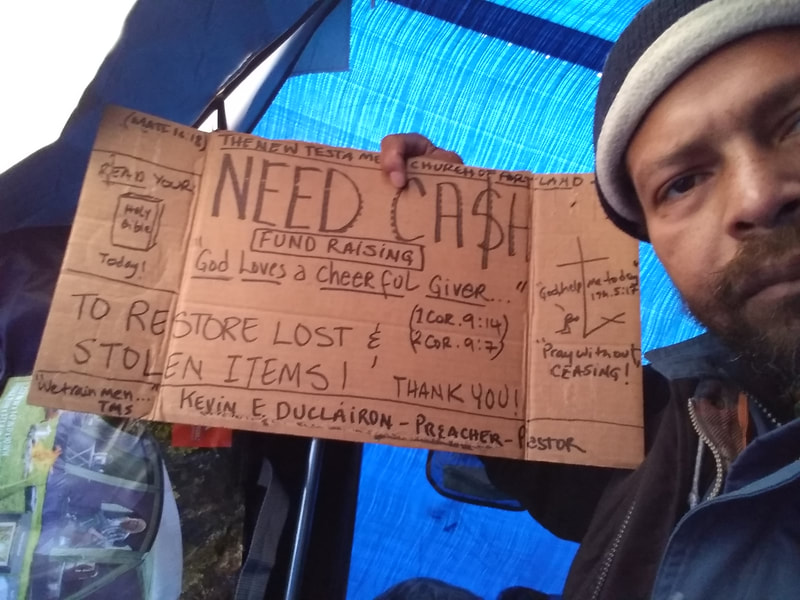 (MATT. 16:18)
THE NEW TESTAME CHURCH OF PORTLAND
READ YOUR
Holy
Bible
Today!
NEED CA$H
FUND RAISING
"God Loves a Cheerful Giver..."
(1 COR. 9:14)
(2 COR. 9:7)
TO RESTORE LOST &
STOLEN ITEMS!
THANK YOU!
"We train men..."
TMS
KEVIN E. DUCLAIRON - PREACHER - PASTOR
"God, help me today
1 Th. 5:17
"Pray without
CEASING!